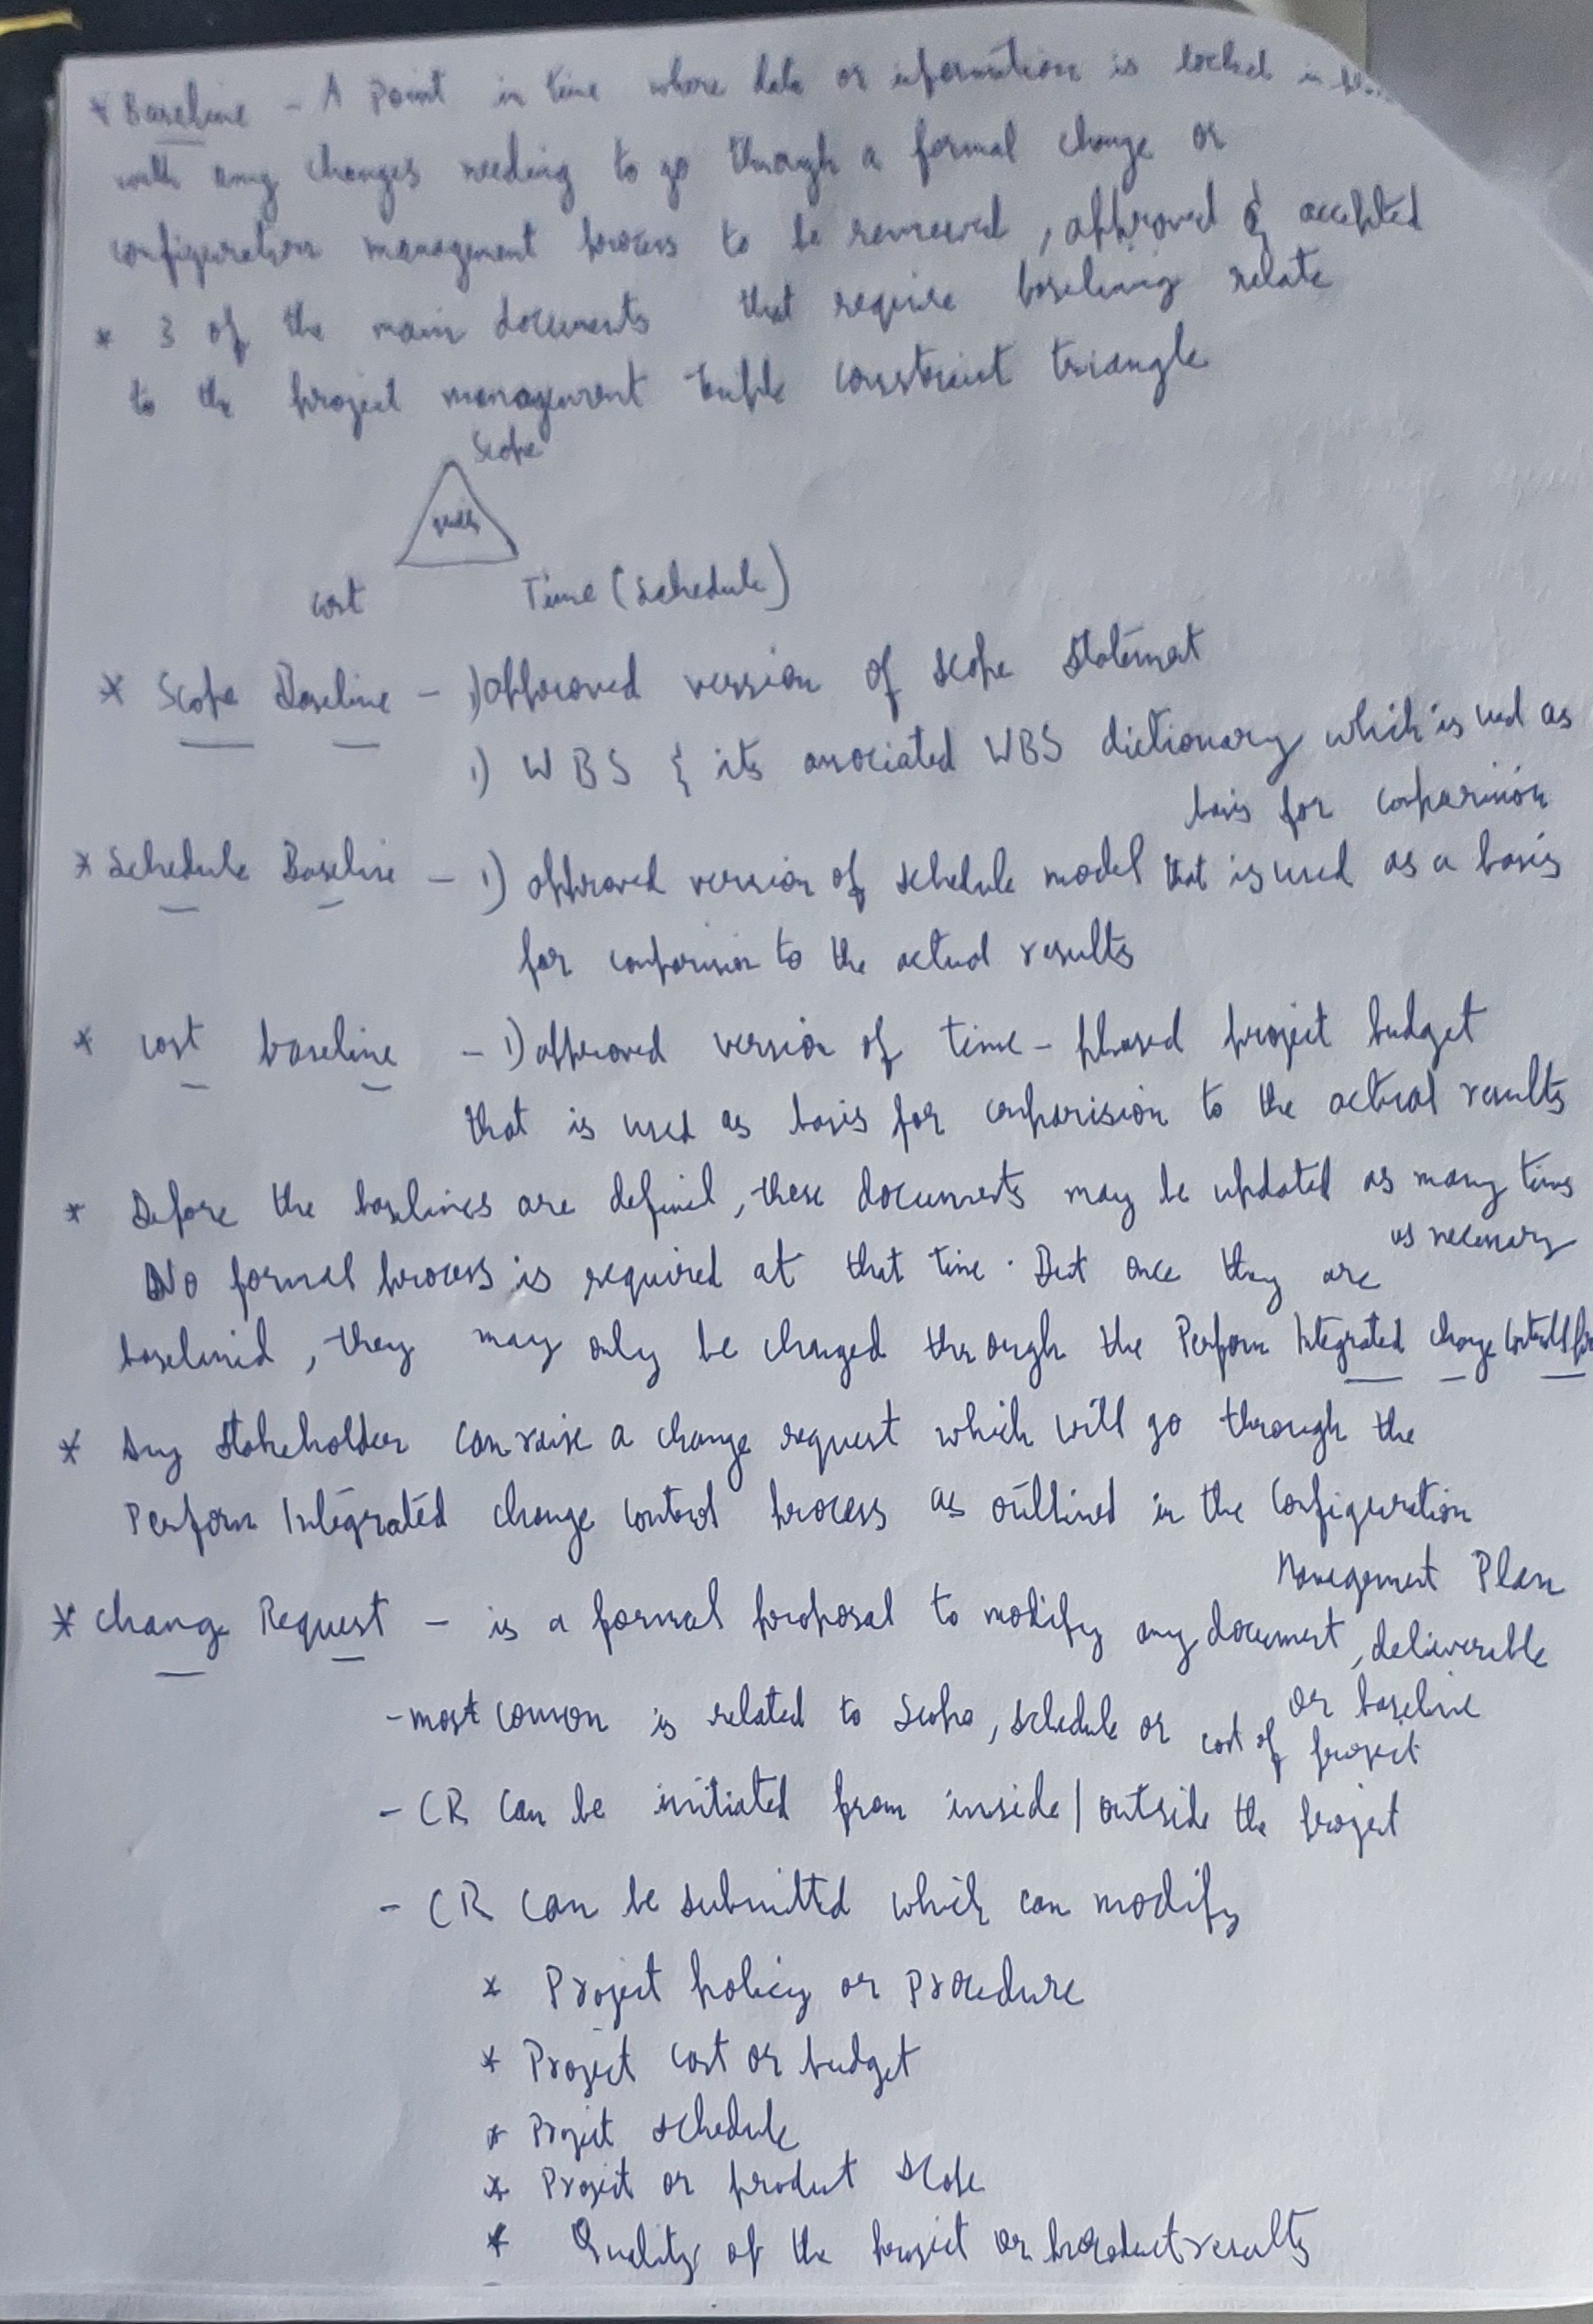 * Baseline - A Point in time where data or information is locked in
with any changes needing to go through a formal change or
configuration management process to be reviewed, approved & accepted
* 3 of the main documents that require baselining relate
to the project management triple constraint triangle
Scope
Cost
Time (Schedule)
* Scope Baseline - 1) approved version of scope statement
1) WBS & its associated WBS dictionary which is used as
basis for comparision
* Schedule Baseline - 1) approved version of schedule model that is used as a basis
for comparision to the actual results
* cost baseline - 1) approved version of time-phased project budget
that is used as basis for comparision to the actual results
* Before the baselines are defined, these documents may be updated as many times
as necessary
No formal process is required at that time. But once they are
baselined, they may only be changed through the Perform Integrated change
* Any Stakeholder can raise a change request which will go through the
Perform Integrated change control process as outlined in the Configuration
Management Plan
* Change Request - is a formal proposal to modify any document, deliverable
or baseline
- most common is related to Scope, schedule or cost of project
- CR can be initiated from inside / outside the project
- CR can be submitted which can modify
* Project policy or Procedure
* Project cost or budget
* Project schedule
* Project or product scope
* Quality of the project or product results